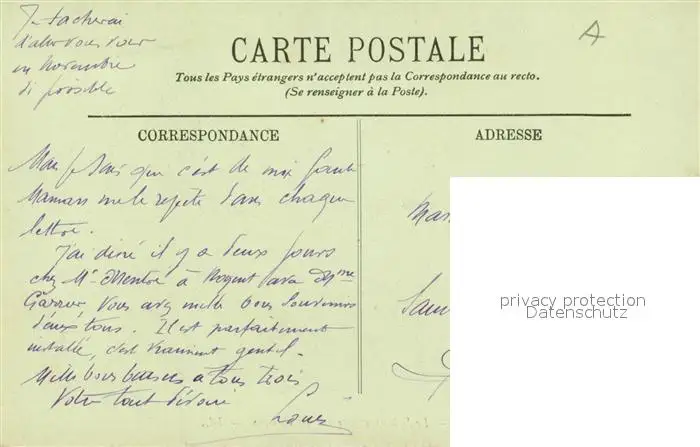 Je tacherai
d'aller vous voir
en novembre
si possible
A
CARTE POSTALE
Tous les Pays étrangers n'acceptent pas la Correspondance au recto.
(Se renseigner à la Poste).
CORRESPONDANCE
Mais je sais que c'est de ma faute
Maman me le repète dans chaque
lettre.
J'ai diné il y a deux jours
chez Mr à Nogent avec Mme
vous avez mille bons souvenirs
d'eux tous. Il est parfaitement
installé, c'est vraiment gentil.
Mille bons baisers a tous trois
Votre tout dévoué
Louis
ADRESSE
privacy protection
Datenschutz